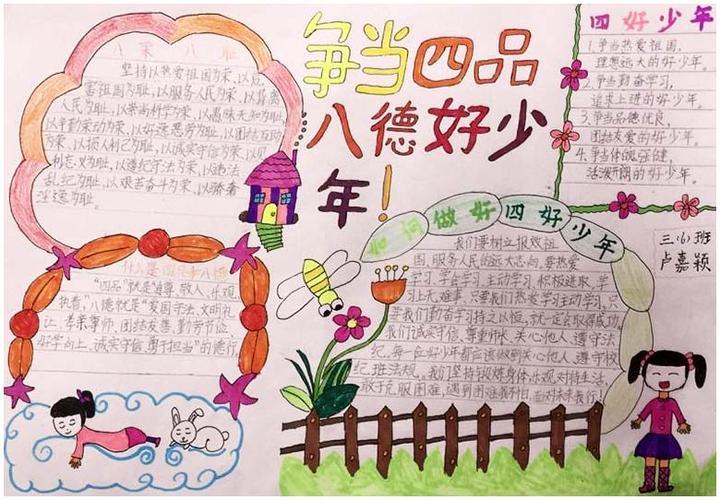 争当四品
八德好少
年！
八荣八耻
坚持以热爱祖国为荣，以危
害祖国为耻，以服务人民为荣，以背离
人民为耻，以崇尚科学为荣，以愚昧无知为耻，
以辛勤劳动为荣，以好逸恶劳为耻，以团结互助
为荣，以损人利己为耻，以诚实守信为荣，以见
利忘义为耻，以遵纪守法为荣，以违法
乱纪为耻，以艰苦奋斗为荣，以骄奢
淫逸为耻。
四好少年
1.争当热爱祖国，
理想远大的好少年。
2.争当勤奋学习，
追求上进的好少年。
3.争当品德优良，
团结友爱的好少年。
4.争当体魄强健，
活泼开朗的好少年。
三(6)班
卢嘉颖
什么是四品和八德
“四品”就是自尊、敬人、乐观、
执着，“八德就是”爱国守法、文明礼
让、孝亲尊师、团结友善、勤劳节俭、
好学向上、诚实守信、勇于担当”的德行。
如何做好四好少年
我们要树立报效祖
国、服务人民的远大志向，要热爱
学习、学会学习、主动学习、积极进取，学
习上无难事，只要我们热爱学习主动学习，只
要我们勤奋学习持之以恒，就一定会取得成功。
我们诚实守信、尊重师长、关心他人、遵守法
纪，每一位好少年都应该做到关心他人、遵守校
纪、班法规，我们坚持锻炼身体乐观对待生活，
敢于克服困难，遇到困难我不怕，面对未来我行！